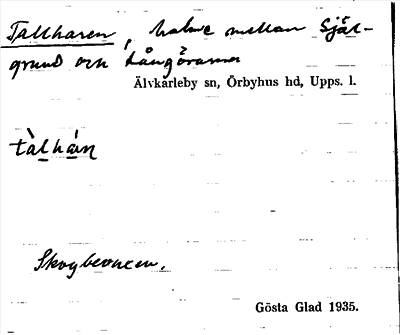 Tallharen, holme mellan Själ-
grund och Långörarna
Älvkarleby sn, Örbyhus hd, Upps. l.
tàlhárn
Skogbevuxen.
Gösta Glad 1935.